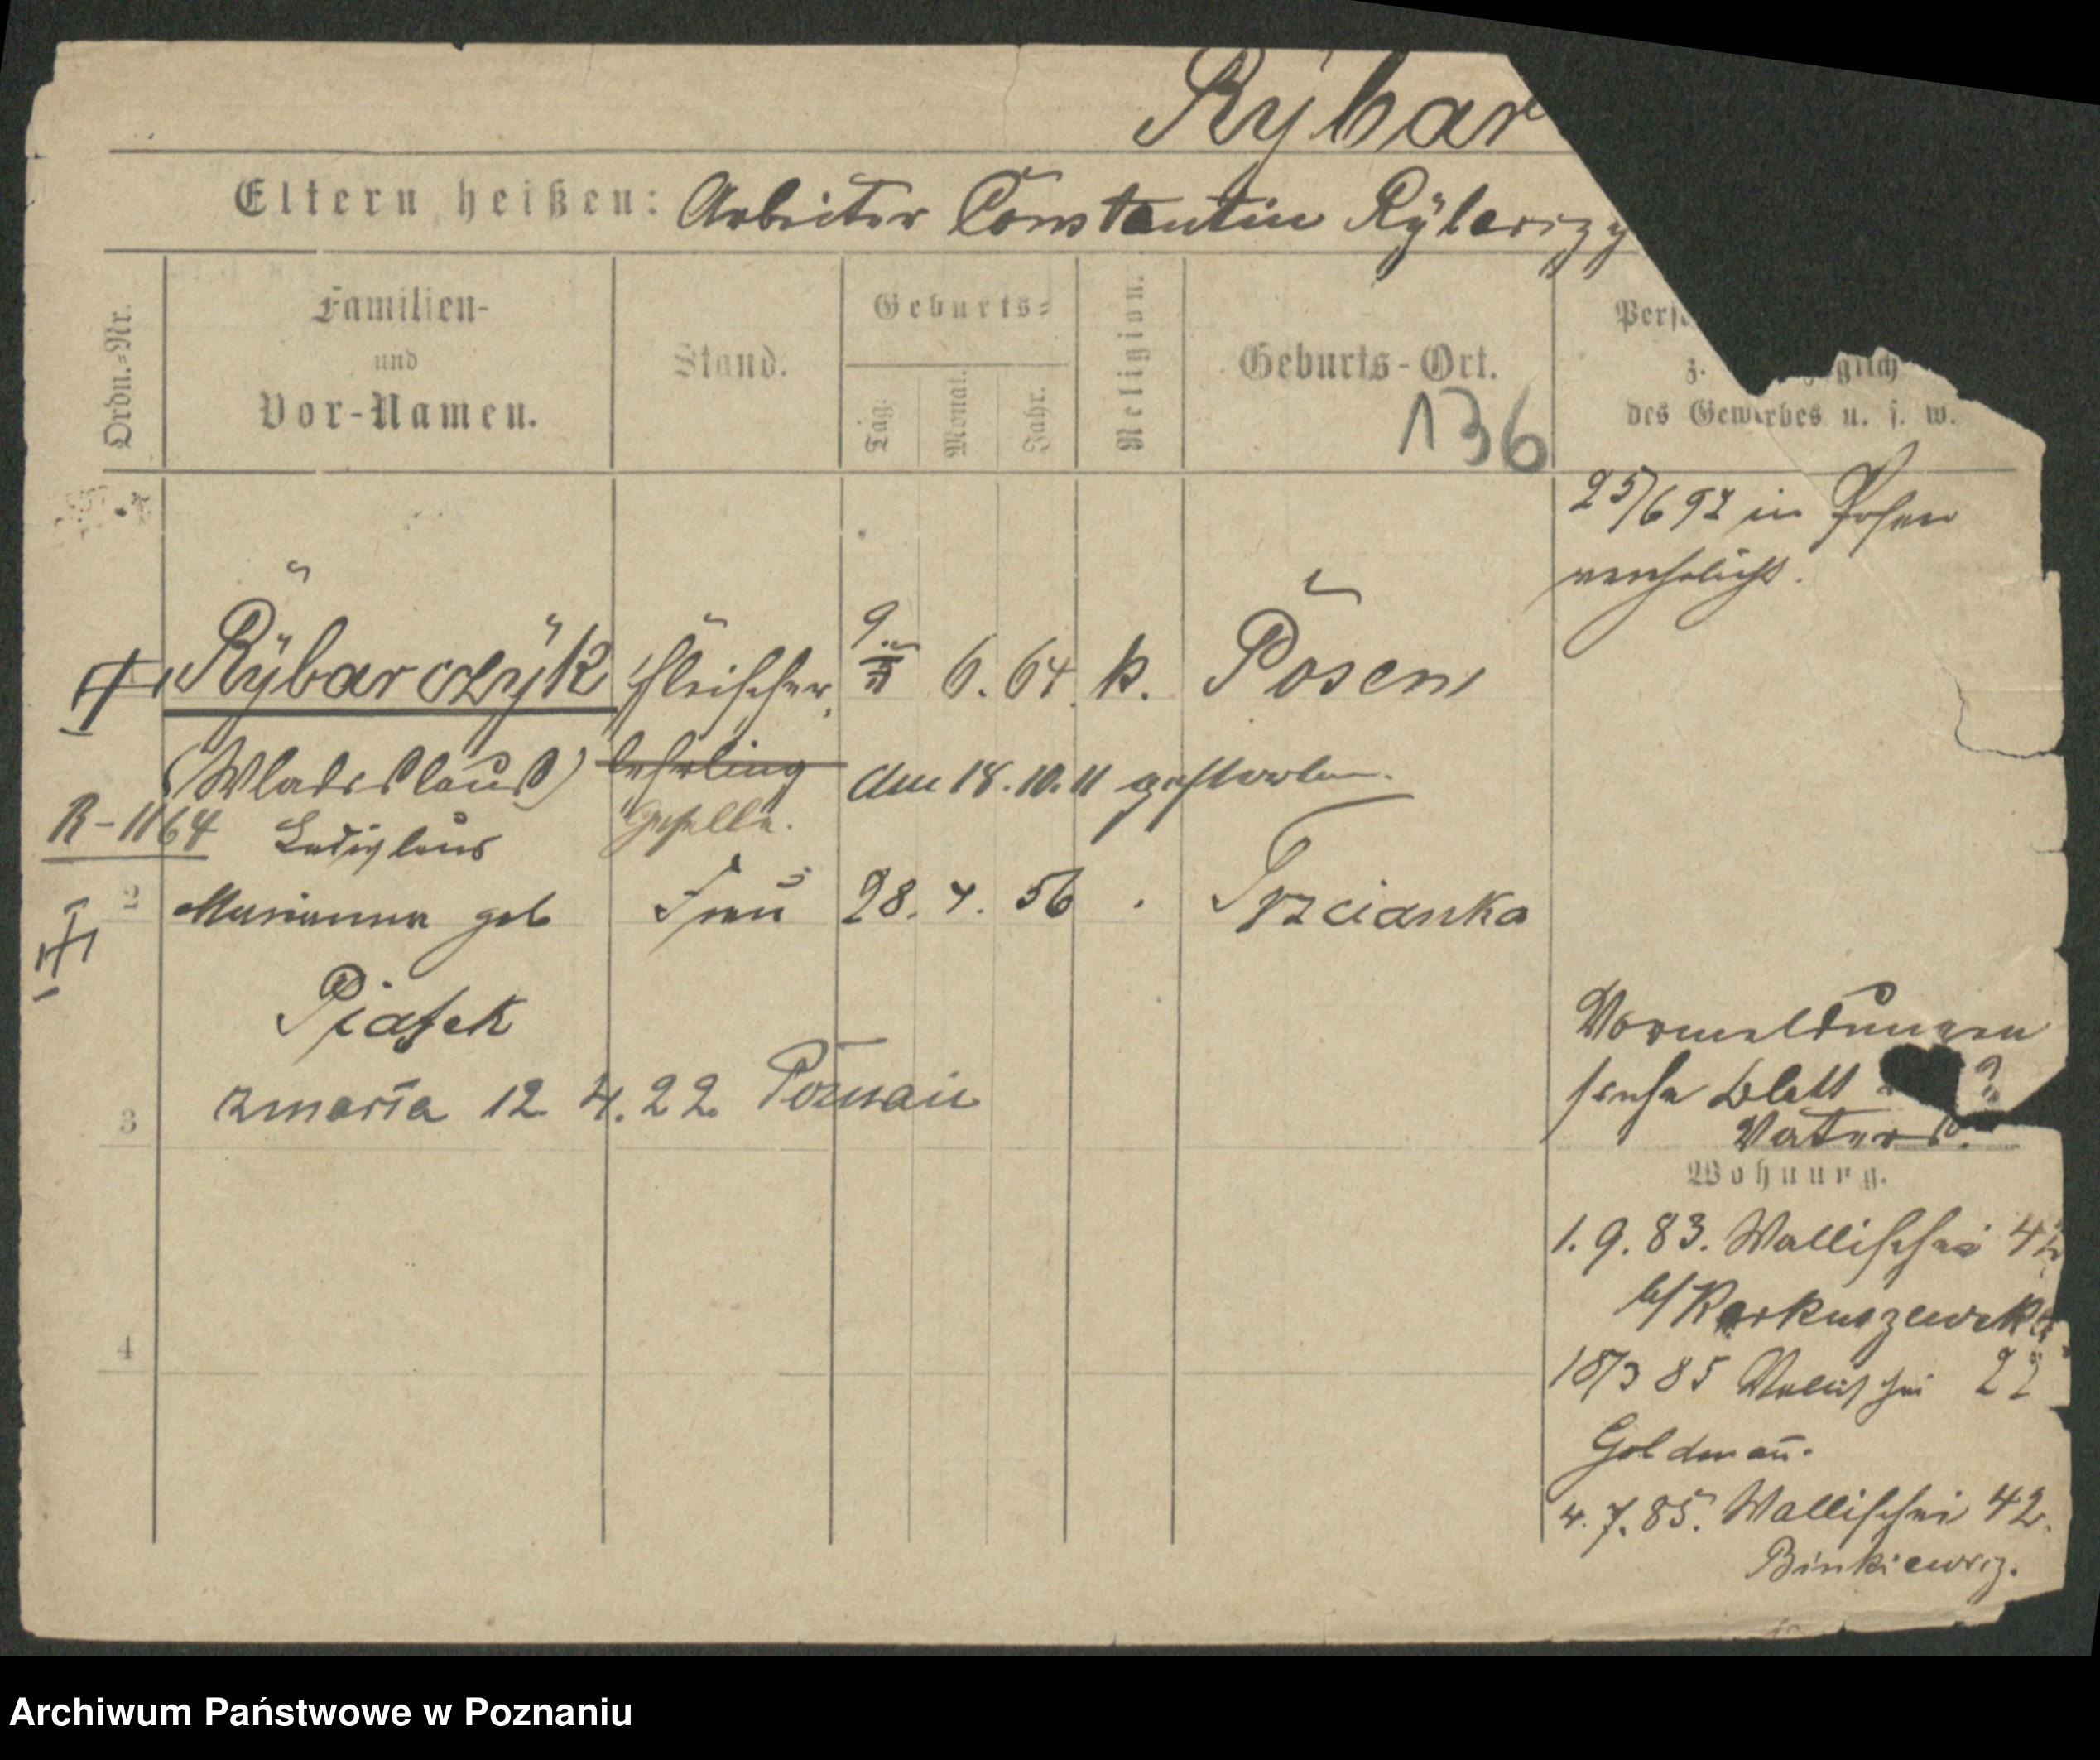 Rÿbar
Eltern heißen: Arbeiter Constantin Rÿbarczy
Ordn.-Nr.
Familien-
und
Vor-Namen.
Stand.
Geburts-
Tag. Monat. Jahr.
Religion.
Geburts-Ort.
136
Pers
z. züglich
des Gewerbes u. s. w.
25/6 92 in Posen
verehelicht.
Rÿbarczÿk Fleischer 6. 64. k. Posen
(Wladislaus) lehrling den 18. 10. 11 gestorben.
R-1164 Ladislaus geselle.
2 Marianna geb Frau 28. 4. 56 Trzcianka
Piatek
zmarła 12. 4. 22. Poznań
3
4
Vormeldungen
siehe Blatt
Vaters.
Wohnung.
1. 9. 83. Wallischei 42
b/ Karkuszewska
18/3 85 Wallischei 22
Goldmañ.
4. 7. 85. Wallischei 42.
Binkiewicz.
Archiwum Państwowe w Poznaniu